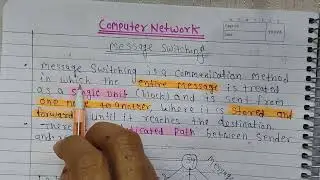 Computer Network
Message Switching
Message Switching is a communication method
in which the entire message is treated
as a single unit (block) and is sent from
one node to another where it is stored and
forward until it reaches the destination.
There Dedicated Path between sender
and